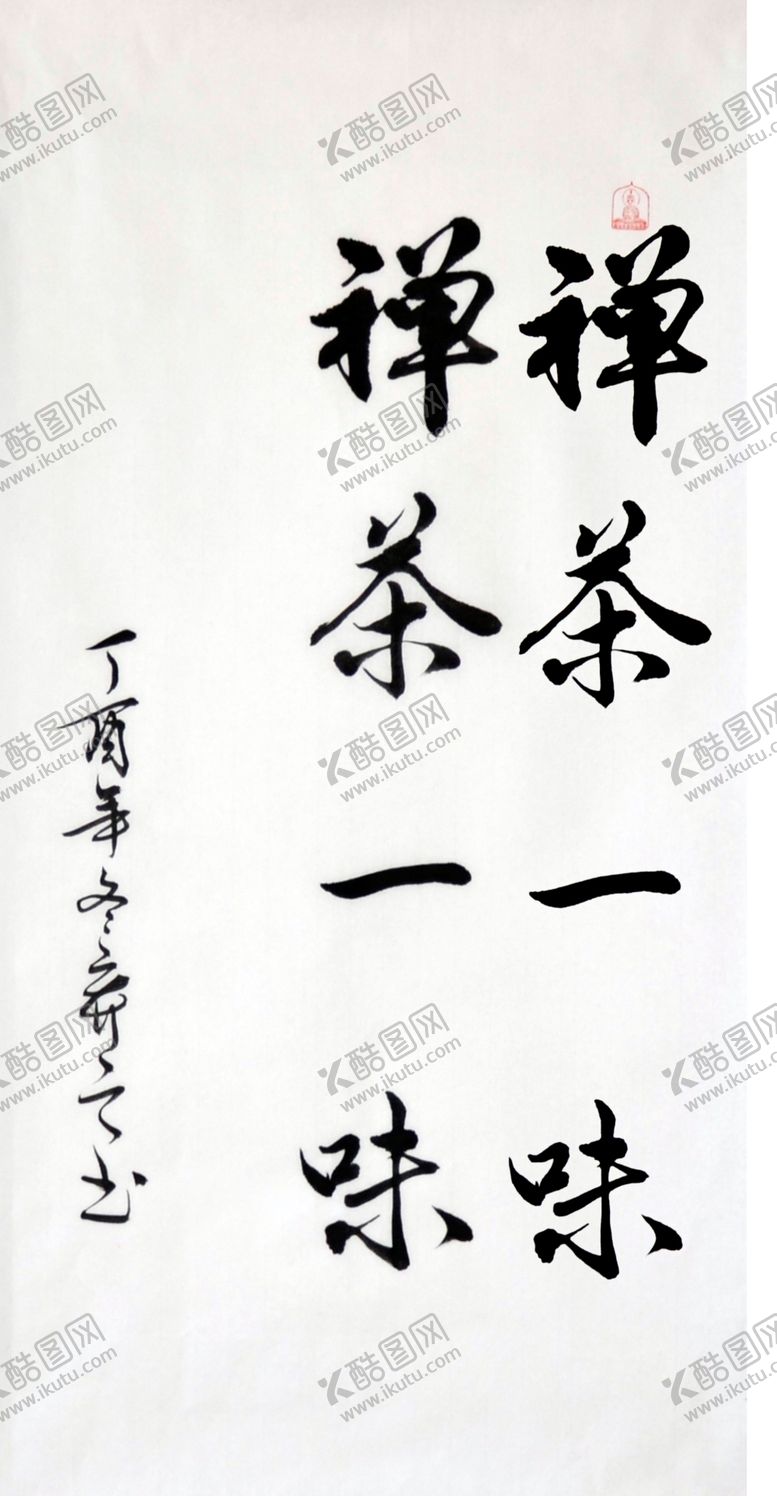 禅茶一味
禅茶一味
丁酉年冬 书
酷图网
www.ikutu.com